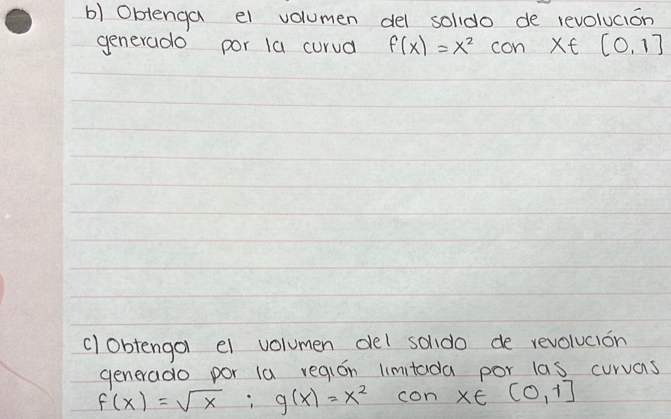 b) Obtenga el volumen del solido de revolución
generado por la curva f(x) = x² con x ∈ [0,1]
c) Obtenga el volumen del solido de revolución
generado por la región limitada por las curvas
f(x) = √x ; g(x) = x² con x ∈ [0,1]